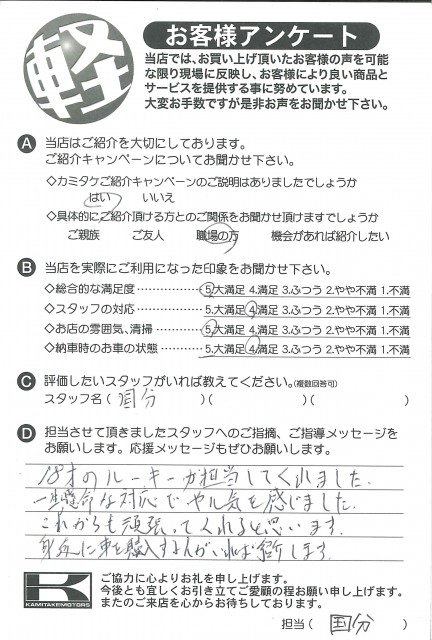 軽
お客様アンケート
当店では、お買い上げ頂いたお客様の声を可能
な限り現場に反映し、お客様により良い商品と
サービスを提供する事に努めています。
大変お手数ですが是非お声をお聞かせ下さい。
A 当店はご紹介を大切にしております。
ご紹介キャンペーンについてお聞かせ下さい。
◇カミタケご紹介キャンペーンのご説明はありましたでしょうか
はい いいえ
◇具体的にご紹介頂ける方とのご関係をお聞かせ頂けますでしょうか
ご親族 ご友人 職場の方 機会があれば紹介したい
B 当店を実際にご利用になった印象をお聞かせ下さい。
◇総合的な満足度 5.大満足 4.満足 3.ふつう 2.やや不満 1.不満
◇スタッフの対応 5.大満足 4.満足 3.ふつう 2.やや不満 1.不満
◇お店の雰囲気、清掃 5.大満足 4.満足 3.ふつう 2.やや不満 1.不満
◇納車時のお車の状態 5.大満足 4.満足 3.ふつう 2.やや不満 1.不満
C 評価したいスタッフがいれば教えてください。(複数回答可)
スタッフ名( 国分 )( )( )
D 担当させて頂きましたスタッフへのご指摘、ご指導メッセージを
お願いします。応援メッセージもぜひお願いします。
18才のルーキーが担当してくれました。
一生懸命な対応でヤル気を感じました。
これからも頑張ってくれると思います。
身近に車を購入する人がいれば紹介します。
K
KAMITAKEMOTORS
ご協力に心よりお礼を申し上げます。
今後とも宜しくお引き立てご愛顧の程お願い申し上げます。
またのご来店を心からお待ちしております。
担当( 国分 )